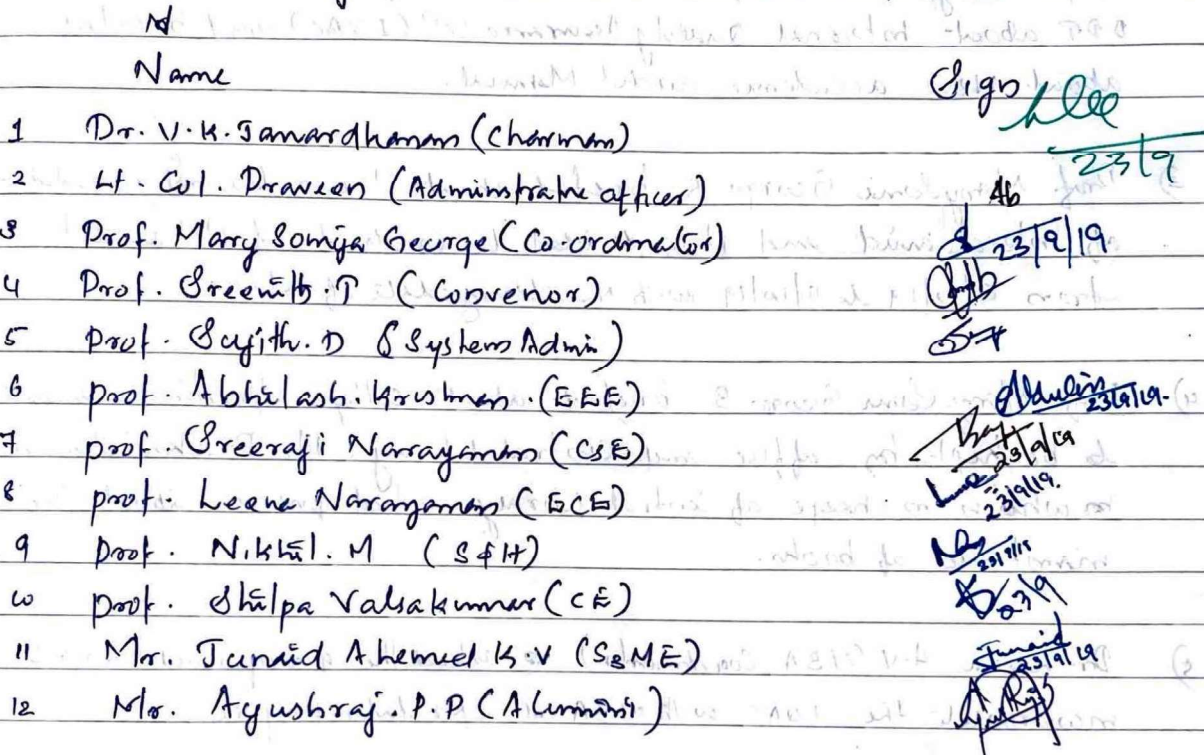 Name Sign
1 Dr. V.K. Janardhanan (Chairman) 23/9
2 Lt. Col. Praveen (Adminstrative officer) Ab
3 Prof. Mary Somija George (Co-ordinator) 23/9/19.
4 Prof. Sreenith. T (Convenor)
5 Prof. Sujith. D (System Admin)
6 Prof. Abhilash. Krishnan. (EEE) 23/9/19.
7 Prof. Sreeraji Narayanan (CSE) 23/9/19
8 Prof. Leena Narayanan (ECE) 23/9/19.
9 Prof. Nikhil. M (S&H) 23/9/19
10 Prof. Shilpa Valsakumar (CE) 23/9
11 Mr. Junaid Ahemed K.V (S3ME) Junaid 23/9/19
12 Mr. Ayushraj. P.P (Alumini)